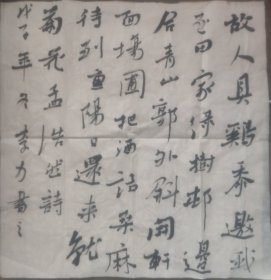 故人具鷄黍邀我
至田家緑樹邨邊
合青山郭外斜開軒
面場圃把酒話桑麻
待到重陽日還来就
菊花孟浩然詩
戊子年冬李方書之